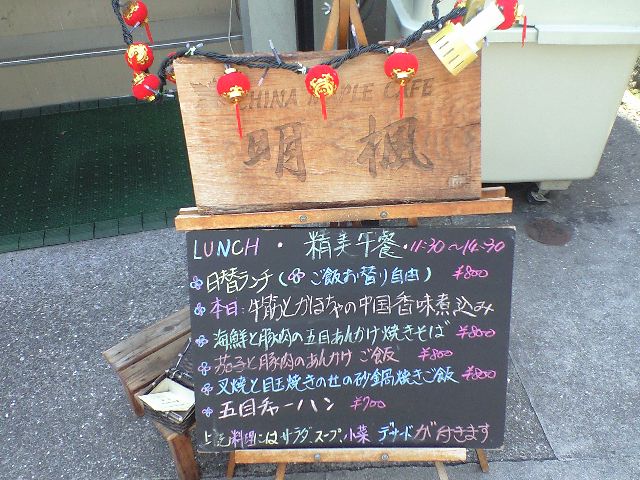 CHINA MAPLE CAFE
明楓
LUNCH・精美午餐・11:30〜14:30
日替ランチ(ご飯お替り自由) ¥800
本日:牛筋とかぼちゃの中国香味煮込み
海鮮と豚肉の五目あんかけ焼きそば ¥800
茄子と豚肉のあんかけご飯 ¥800
叉焼と目玉焼きのせの砂鍋焼きご飯 ¥800
五目チャーハン ¥700
上記料理にはサラダ、スープ、小菜 デザートが付きます